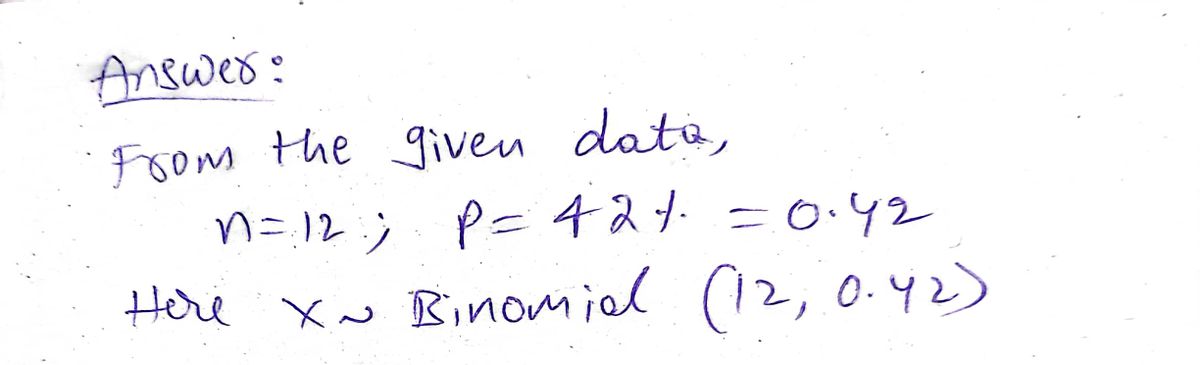 Answer:
From the given data,
n=12; P= 42% = 0.42
Here X ~ Binomial (12, 0.42)